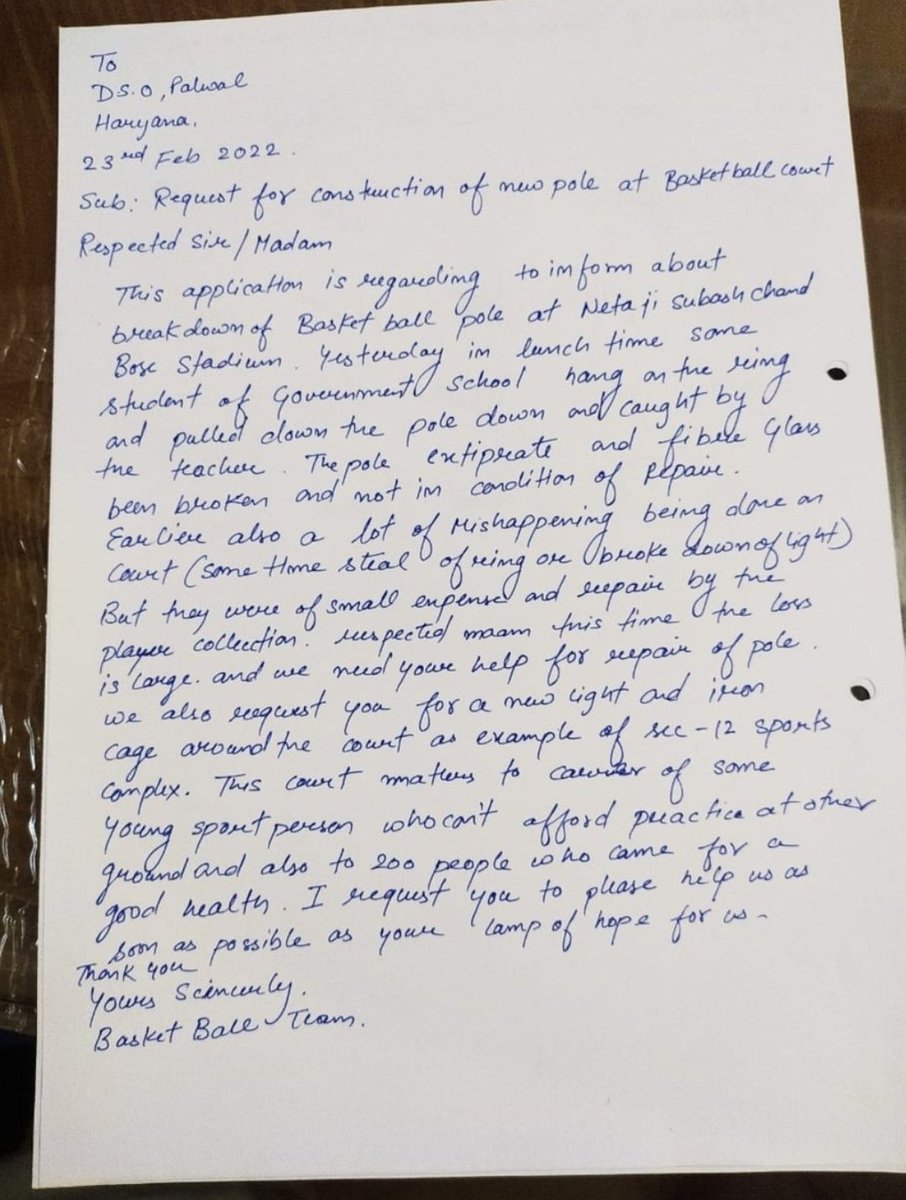 To
DS.O, Palwal
Haryana.
23rd Feb 2022.
Sub: Request for construction of new pole at Basketball court
Respected Sir/Madam
This application is regarding to inform about
breakdown of Basket ball pole at Netaji Subash chand
Bose Stadium. Yesterday in lunch time some
student of Government School hang on the ring
and pulled down the pole down and caught by
the teacher. The pole extiprate and fibre Glass
been broken and not in condition of Repair.
Earlier also a lot of Mishappening being done on
Court (some time steal of ring or broke down of light)
But they were of small expense and repair by the
player collection. respected maam this time the loss
is large. and we need your help for repair of pole.
we also request you for a new light and iron
cage around the court as example of sec-12 sports
complex. This court matters to of some
Young sport person who can't afford practice at other
ground and also to 200 people who came for a
good health. I request you to please help us as
soon as possible as your lamp of hope for us-
Thank you
Yours Scincerly.
Basket Ball Team.